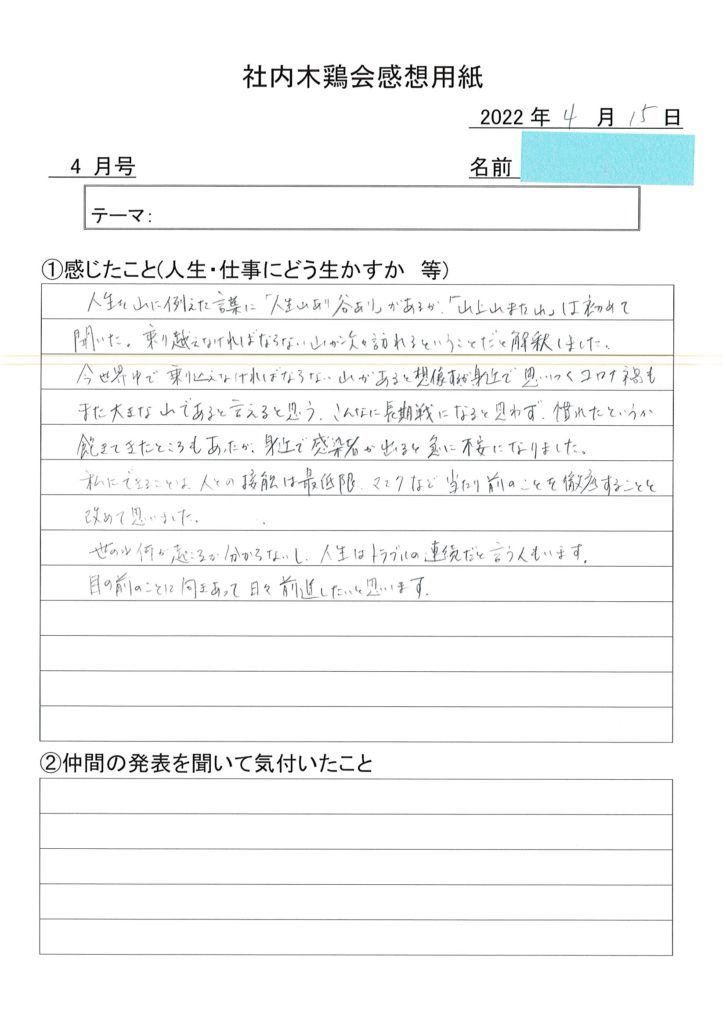 社内木鶏会感想用紙
2022 年 4 月 15 日
4 月号
名前
テーマ:
①感じたこと(人生・仕事にどう生かすか 等)
人生を山に例えた言葉に「人生山あり谷あり」があるが、「山上山また山」は初めて
聞いた。乗り越えなければならない山が次々訪れるということだと解釈しました。
今世界中で乗り込えなければならない山があると想像するが身近で思いつくコロナ禍も
また大きな山であると言えると思う。こんなに長期戦になると思わず、慣れたというか
飽きてきたところもあったが、身近で感染者が出ると急に不安になりました。
私にできることは、人との接触は最低限、マスクなど当たり前のことを徹底することと
改めて思いました。
世の中何が起こるか分からないし、人生はトラブルの連続だと言う人もいます。
目の前のことに向きあって日々前進したいと思います。
②仲間の発表を聞いて気付いたこと